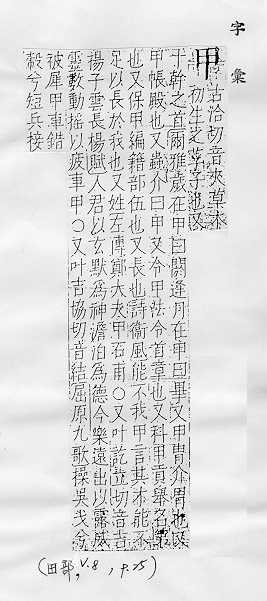 字彙
甲
古洽切音夾草木
初生之莩子也又
十幹之首爾雅歲在甲曰閼逢月在甲曰畢又甲冑介冑也又
甲帳殿也又蟲介曰甲又令甲法令首章也又科甲貢舉名第
也又保甲編籍部伍也又長也詩衛風能不我甲言其才能不
足以長於我也又姓左傳鄭大夫甲石甫〇又叶訖立切音吉
揚子雲長楊賦人君以玄默為神澹泊為德今樂遠出以露威
靈數動搖以疲車甲〇又叶吉協切音結屈原九歌操吳戈兮
被犀甲車錯
轂兮短兵接
(田部, V.8, p.25)